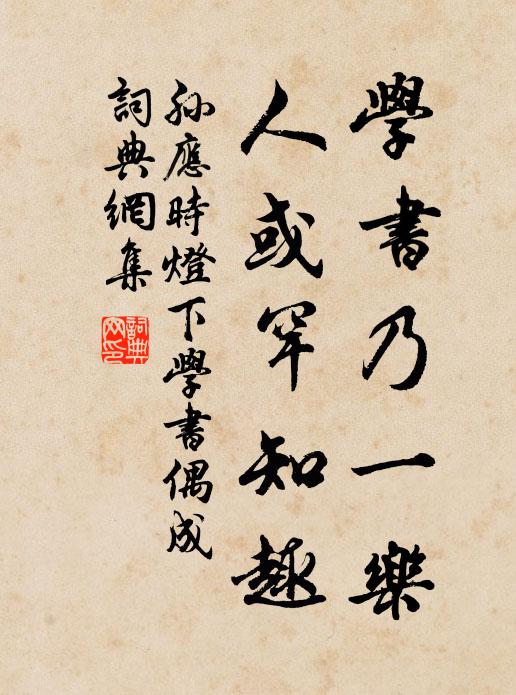 學書乃一樂
人或罕知趣
孫應時燈下學書偶成
詞典網集
詞典網印